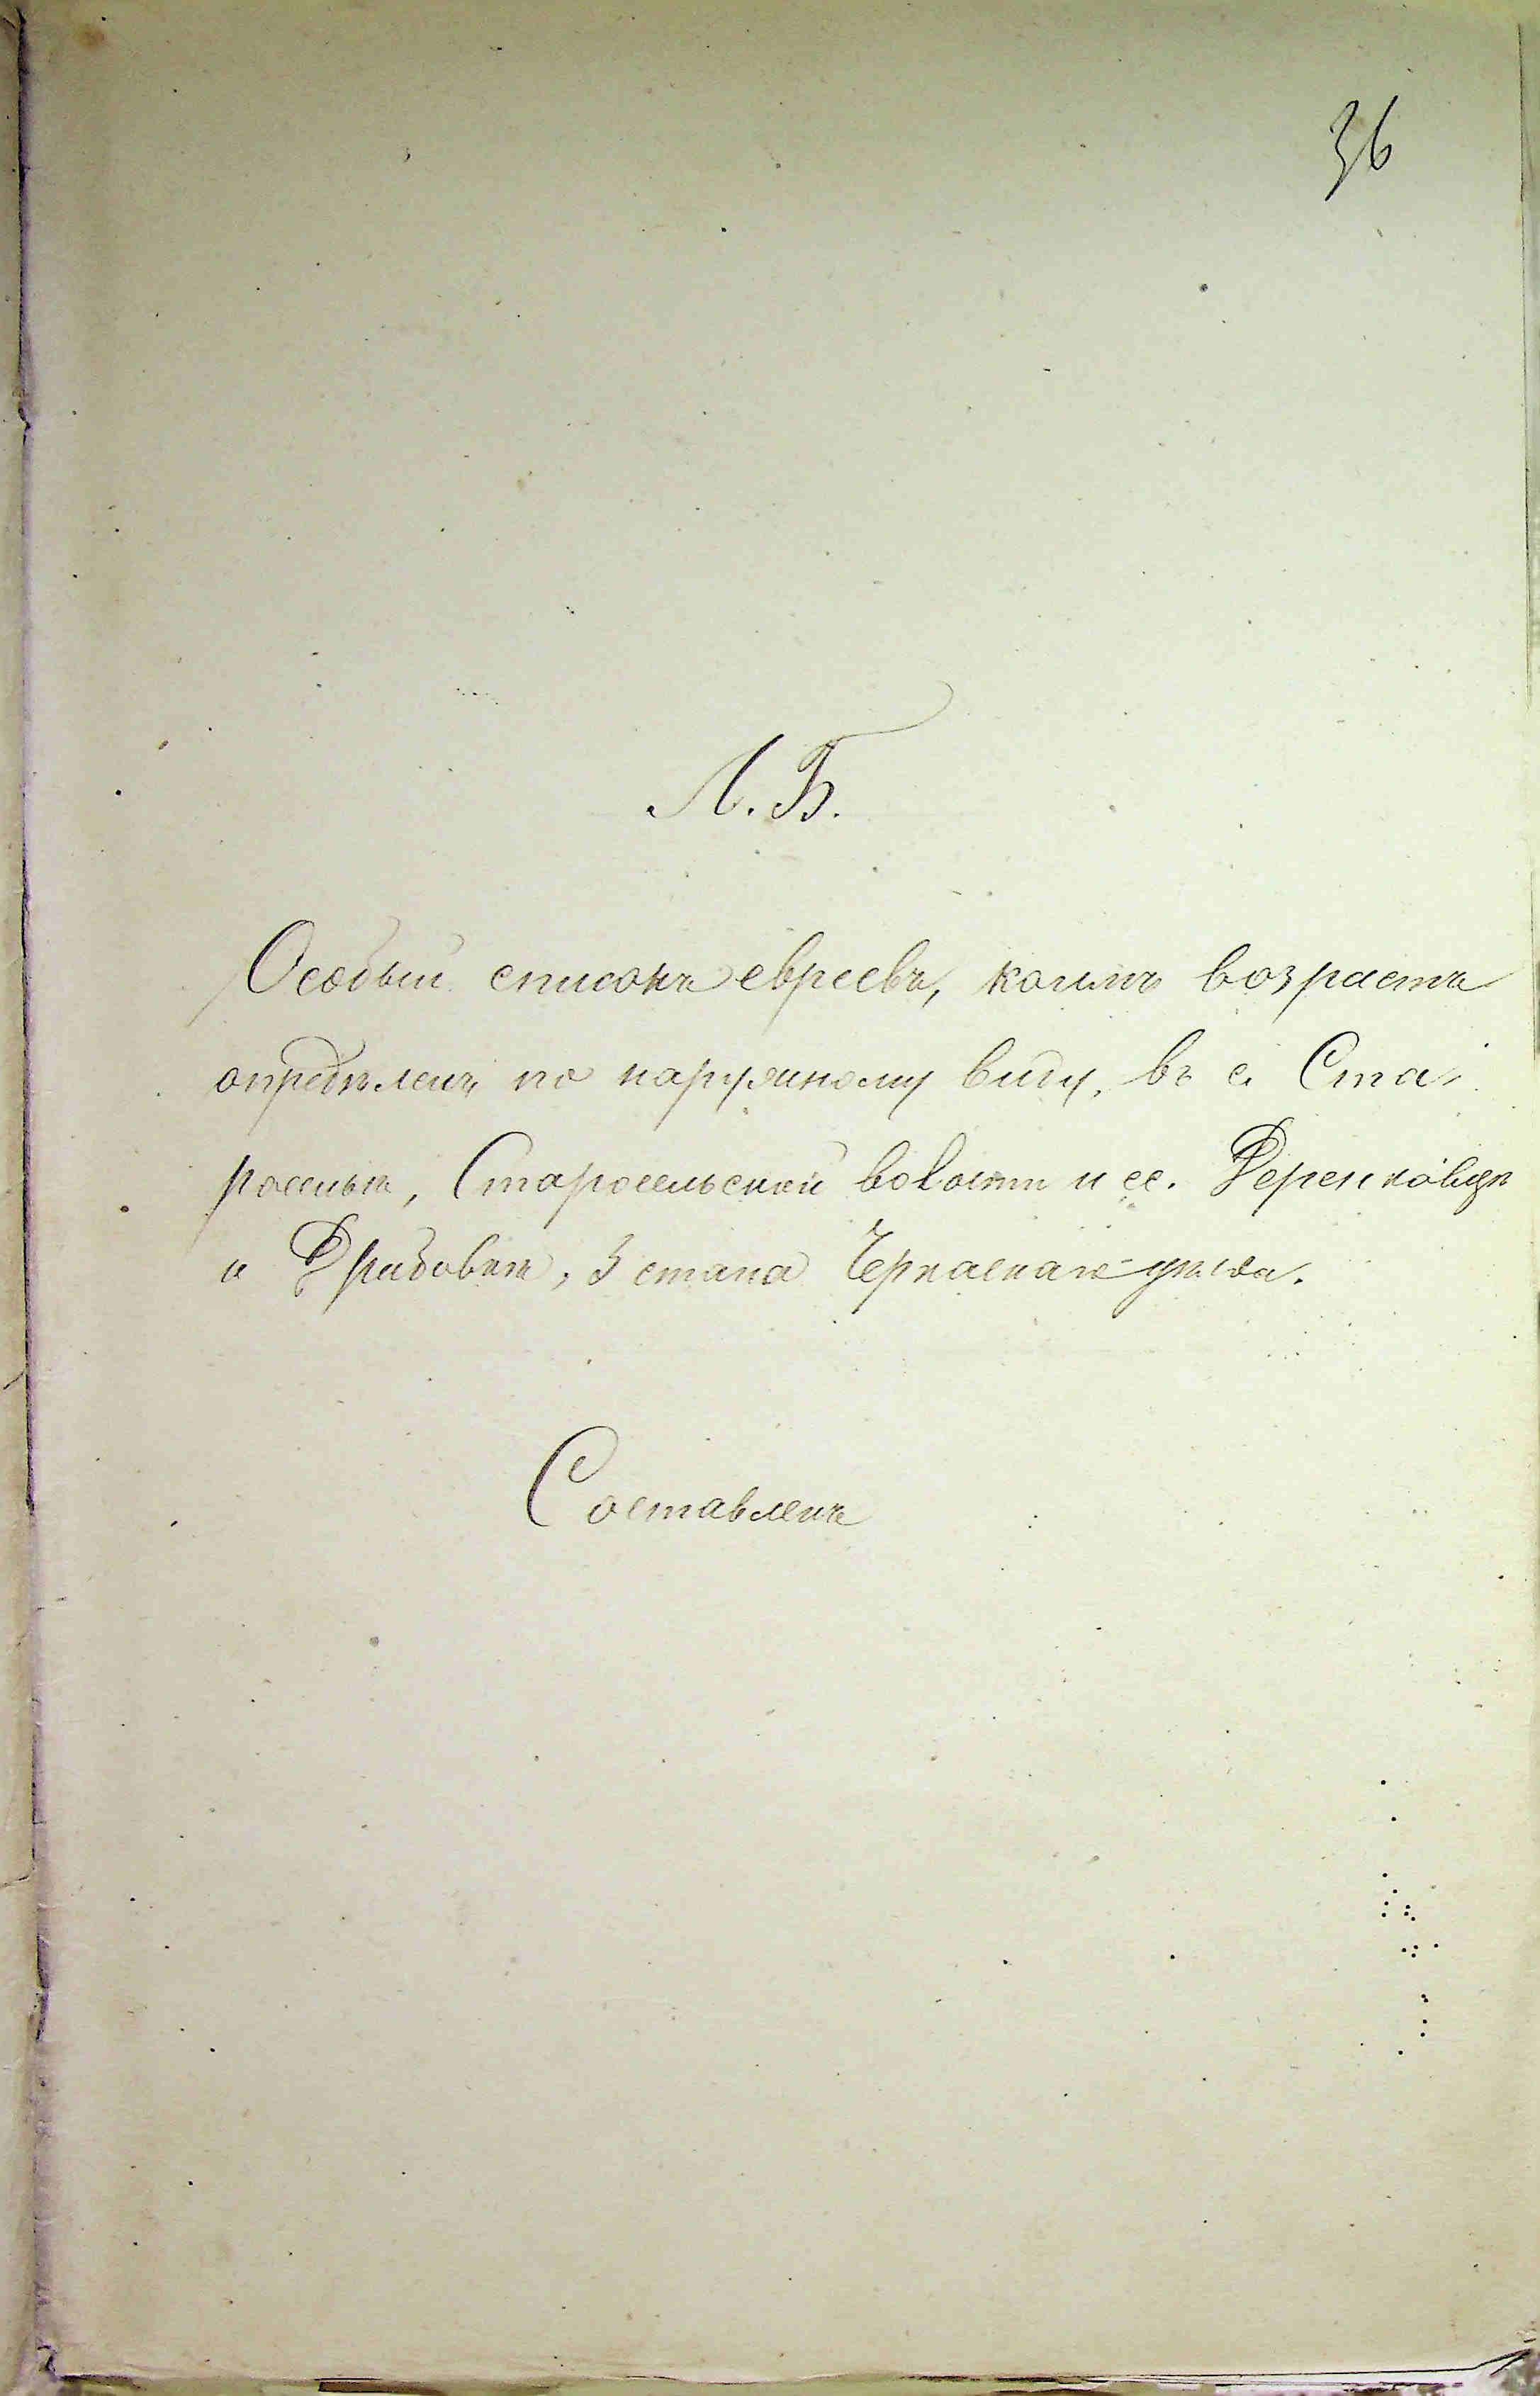 36
Л. Б.
Особый списокъ евреевъ, коимъ возрастъ
опредѣленъ по наружному виду, въ с. Ста-
росельѣ, Старосельской волости и сс. Деренковцѣ
и Драбовкѣ, 3 стана Черкаскаго уѣзда.
Составленъ